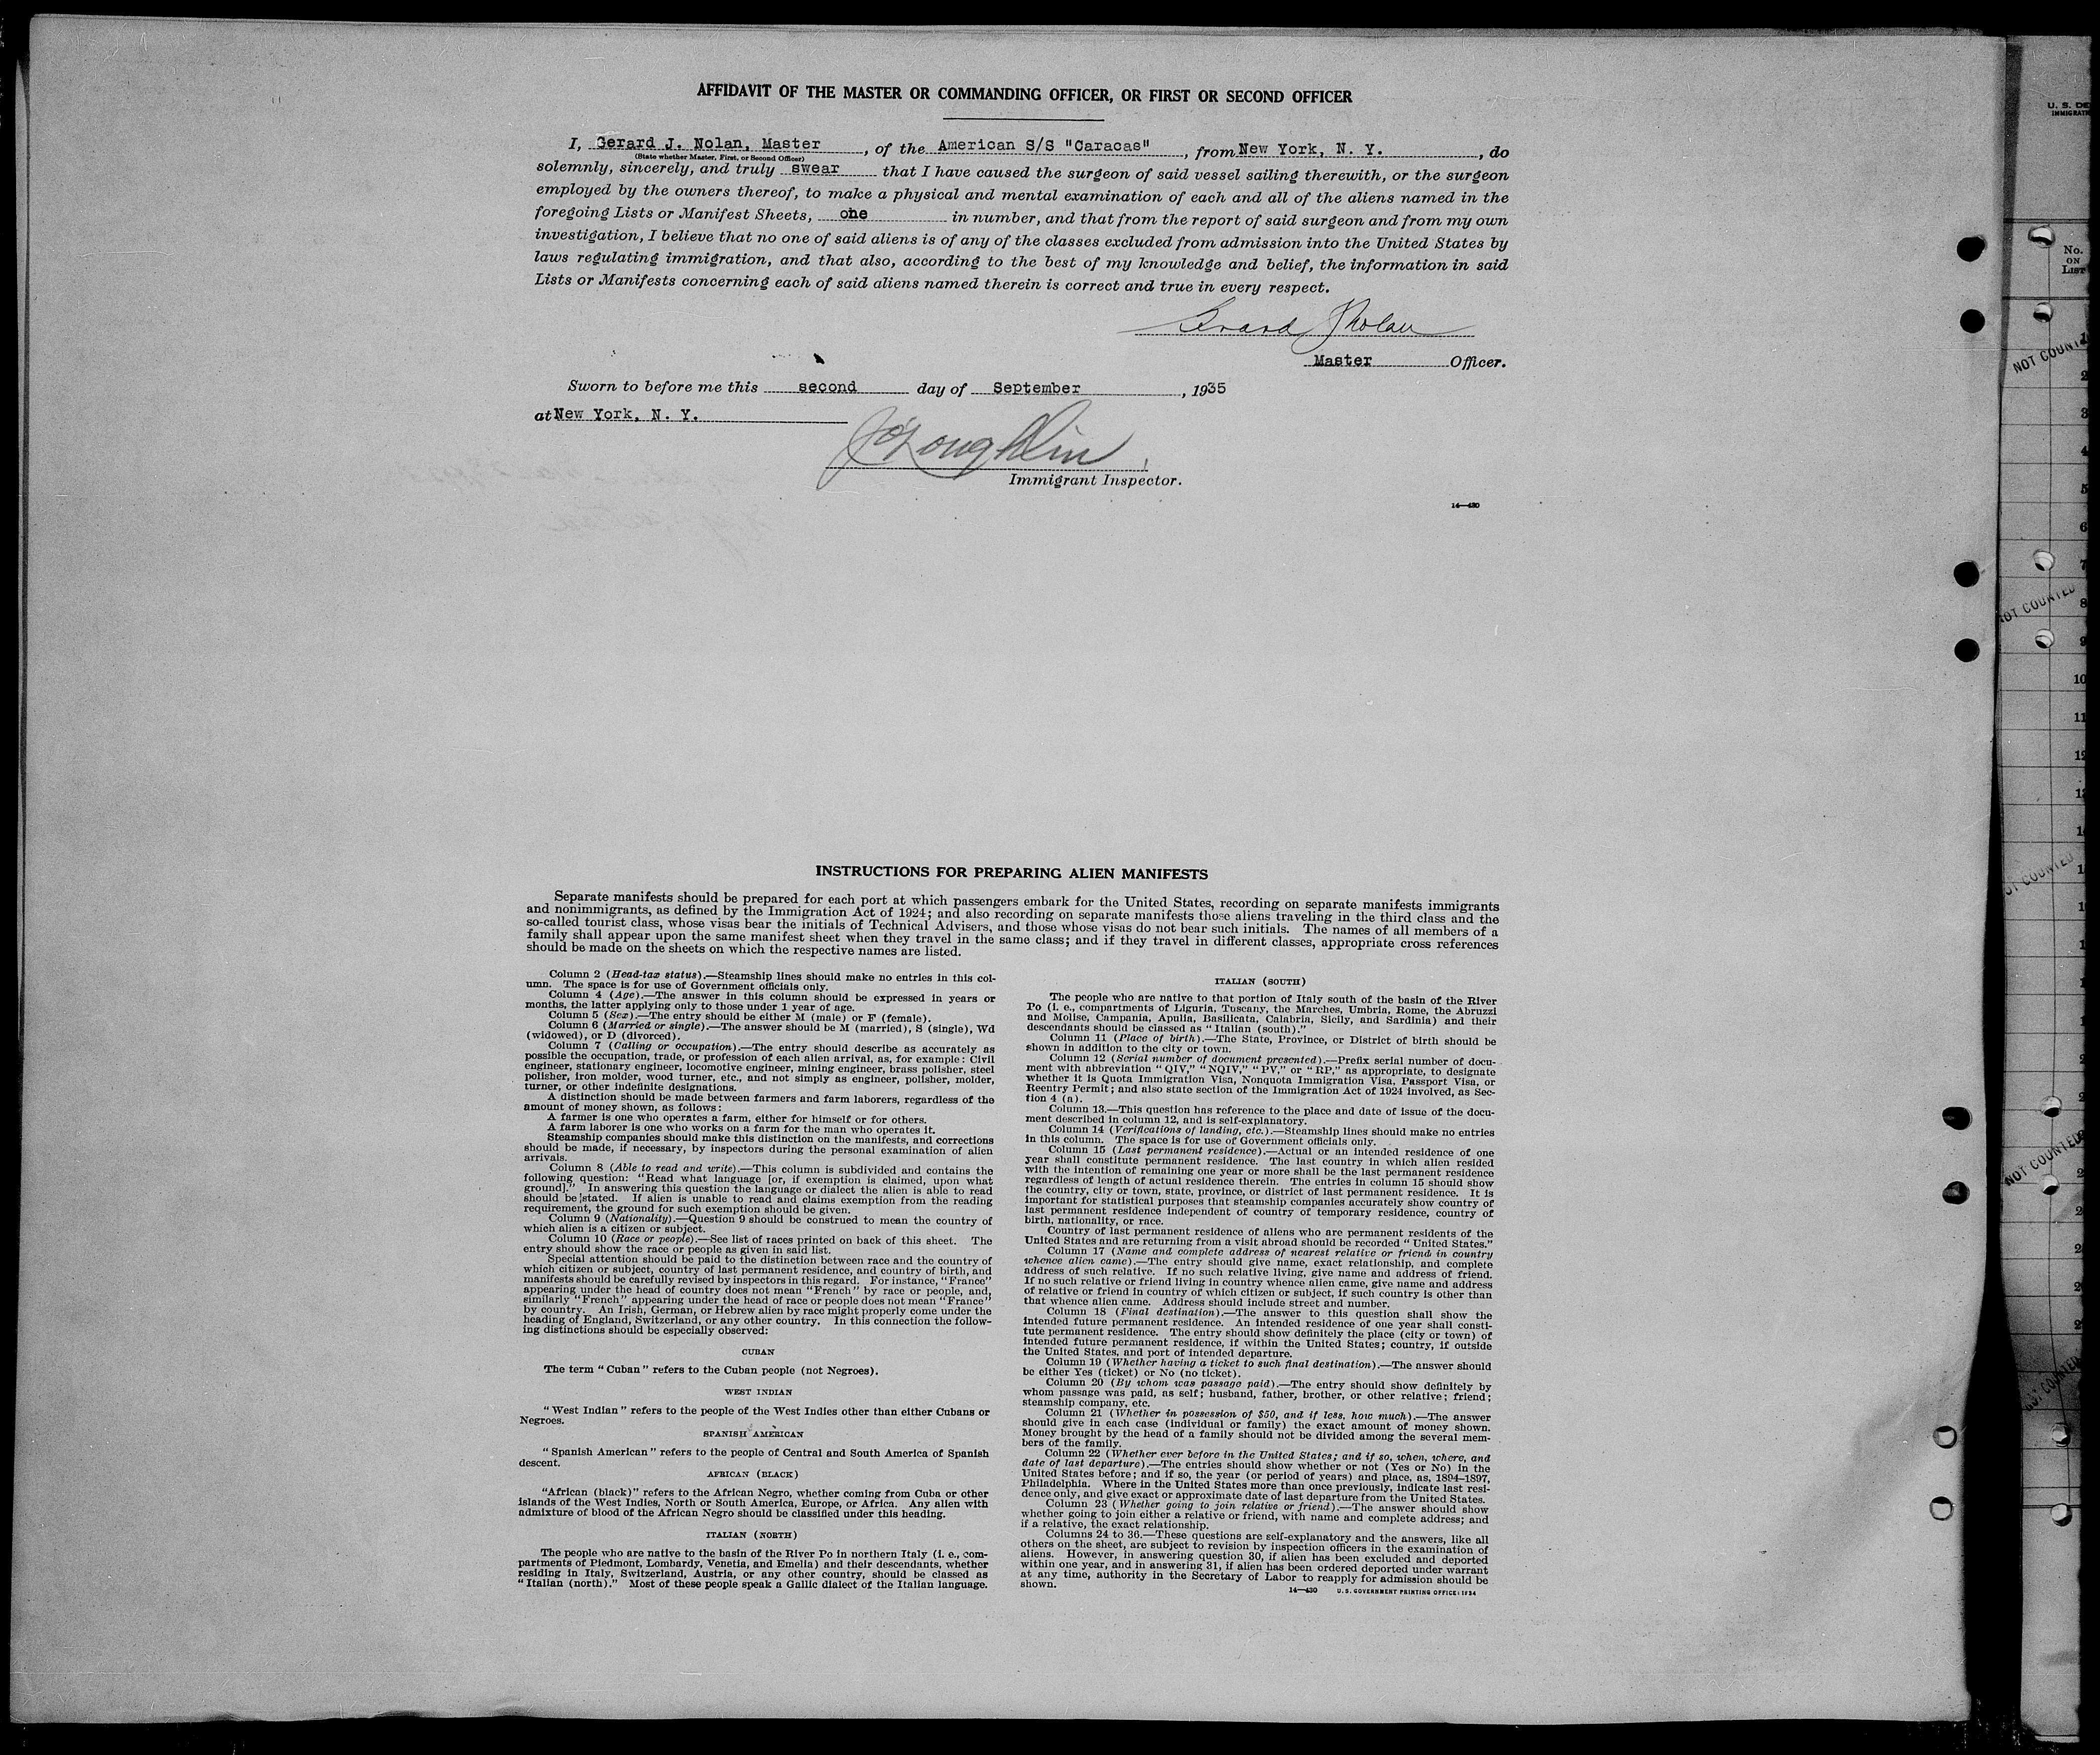 AFFIDAVIT OF THE MASTER OR COMMANDING OFFICER, OR FIRST OR SECOND OFFICER
I, Gerard J. Nolan, Master, of the American S/S "Caracas", from New York, N. Y., do
(State whether Master, First, or Second Officer)
solemnly, sincerely, and truly swear that I have caused the surgeon of said vessel sailing therewith, or the surgeon
employed by the owners thereof, to make a physical and mental examination of each and all of the aliens named in the
foregoing Lists or Manifest Sheets, one in number, and that from the report of said surgeon and from my own
investigation, I believe that no one of said aliens is of any of the classes excluded from admission into the United States by
laws regulating immigration, and that also, according to the best of my knowledge and belief, the information in said
Lists or Manifests concerning each of said aliens named therein is correct and true in every respect.
Gerard J Nolan
Master Officer.
Sworn to before me this second day of September, 1935
at New York, N. Y.
Immigrant Inspector.
14—430
INSTRUCTIONS FOR PREPARING ALIEN MANIFESTS
Separate manifests should be prepared for each port at which passengers embark for the United States, recording on separate manifests immigrants
and nonimmigrants, as defined by the Immigration Act of 1924; and also recording on separate manifests those aliens traveling in the third class and the
so-called tourist class, whose visas bear the initials of Technical Advisers, and those whose visas do not bear such initials. The names of all members of a
family shall appear upon the same manifest sheet when they travel in the same class; and if they travel in different classes, appropriate cross references
should be made on the sheets on which the respective names are listed.
Column 2 (Head-tax status).—Steamship lines should make no entries in this col-
umn. The space is for use of Government officials only.
Column 4 (Age).—The answer in this column should be expressed in years or
months, the latter applying only to those under 1 year of age.
Column 5 (Sex).—The entry should be either M (male) or F (female).
Column 6 (Married or single).—The answer should be M (married), S (single), Wd
(widowed), or D (divorced).
Column 7 (Calling or occupation).—The entry should describe as accurately as
possible the occupation, trade, or profession of each alien arrival, as, for example: Civil
engineer, stationary engineer, locomotive engineer, mining engineer, brass polisher, steel
polisher, iron molder, wood turner, etc., and not simply as engineer, polisher, molder,
turner, or other indefinite designations.
A distinction should be made between farmers and farm laborers, regardless of the
amount of money shown, as follows:
A farmer is one who operates a farm, either for himself or for others.
A farm laborer is one who works on a farm for the man who operates it.
Steamship companies should make this distinction on the manifests, and corrections
should be made, if necessary, by inspectors during the personal examination of alien
arrivals.
Column 8 (Able to read and write).—This column is subdivided and contains the
following question: "Read what language [or, if exemption is claimed, upon what
ground]." In answering this question the language or dialect the alien is able to read
should be stated. If alien is unable to read and claims exemption from the reading
requirement, the ground for such exemption should be given.
Column 9 (Nationality).—Question 9 should be construed to mean the country of
which alien is a citizen or subject.
Column 10 (Race or people).—See list of races printed on back of this sheet. The
entry should show the race or people as given in said list.
Special attention should be paid to the distinction between race and the country of
which citizen or subject, country of last permanent residence, and country of birth, and
manifests should be carefully revised by inspectors in this regard. For instance, "France"
appearing under the head of country does not mean "French" by race or people, and,
similarly "French" appearing under the head of race or people does not mean "France"
by country. An Irish, German, or Hebrew alien by race might properly come under the
heading of England, Switzerland, or any other country. In this connection the follow-
ing distinctions should be especially observed:
CUBAN
The term "Cuban" refers to the Cuban people (not Negroes).
WEST INDIAN
"West Indian" refers to the people of the West Indies other than either Cubans or
Negroes.
SPANISH AMERICAN
"Spanish American" refers to the people of Central and South America of Spanish
descent.
AFRICAN (BLACK)
"African (black)" refers to the African Negro, whether coming from Cuba or other
islands of the West Indies, North or South America, Europe, or Africa. Any alien with
admixture of blood of the African Negro should be classified under this heading.
ITALIAN (NORTH)
The people who are native to the basin of the River Po in northern Italy (i. e., com-
partments of Piedmont, Lombardy, Venetia, and Emelia) and their descendants, whether
residing in Italy, Switzerland, Austria, or any other country, should be classed as
"Italian (north)." Most of these people speak a Gallic dialect of the Italian language.
ITALIAN (SOUTH)
The people who are native to that portion of Italy south of the basin of the River
Po (i. e., compartments of Liguria, Tuscany, the Marches, Umbria, Rome, the Abruzzi
and Molise, Campania, Apulia, Basilicata, Calabria, Sicily, and Sardinia) and their
descendants should be classed as "Italian (south)."
Column 11 (Place of birth).—The State, Province, or District of birth should be
shown in addition to the city or town.
Column 12 (Serial number of document presented).—Prefix serial number of docu-
ment with abbreviation "QIV," "NQIV," "PV," or "RP," as appropriate, to designate
whether it is Quota Immigration Visa, Nonquota Immigration Visa, Passport Visa, or
Reentry Permit; and also state section of the Immigration Act of 1924 involved, as Sec-
tion 4 (a).
Column 13.—This question has reference to the place and date of issue of the docu-
ment described in column 12, and is self-explanatory.
Column 14 (Verifications of landing, etc.).—Steamship lines should make no entries
in this column. The space is for use of Government officials only.
Column 15 (Last permanent residence).—Actual or an intended residence of one
year shall constitute permanent residence. The last country in which alien resided
with the intention of remaining one year or more shall be the last permanent residence
regardless of length of actual residence therein. The entries in column 15 should show
the country, city or town, state, province, or district of last permanent residence. It is
important for statistical purposes that steamship companies accurately show country of
last permanent residence independent of country of temporary residence, country of
birth, nationality, or race.
Country of last permanent residence of aliens who are permanent residents of the
United States and are returning from a visit abroad should be recorded "United States."
Column 17 (Name and complete address of nearest relative or friend in country
whence alien came).—The entry should give name, exact relationship, and complete
address of such relative. If no such relative living, give name and address of friend.
If no such relative or friend living in country whence alien came, give name and address
of relative or friend in country of which citizen or subject, if such country is other than
that whence alien came. Address should include street and number.
Column 18 (Final destination).—The answer to this question shall show the
intended future permanent residence. An intended residence of one year shall consti-
tute permanent residence. The entry should show definitely the place (city or town) of
intended future permanent residence, if within the United States; country, if outside
the United States, and port of intended departure.
Column 19 (Whether having a ticket to such final destination).—The answer should
be either Yes (ticket) or No (no ticket).
Column 20 (By whom was passage paid).—The entry should show definitely by
whom passage was paid, as self; husband, father, brother, or other relative; friend;
steamship company, etc.
Column 21 (Whether in possession of $50, and if less, how much).—The answer
should give in each case (individual or family) the exact amount of money shown.
Money brought by the head of a family should not be divided among the several mem-
bers of the family.
Column 22 (Whether ever before in the United States; and if so, when, where, and
date of last departure).—The entries should show whether or not (Yes or No) in the
United States before; and if so, the year (or period of years) and place, as, 1894–1897,
Philadelphia. Where in the United States more than once previously, indicate last resi-
dence only, and give exact or approximate date of last departure from the United States.
Column 23 (Whether going to join relative or friend).—The answer should show
whether going to join either a relative or friend, with name and complete address; and
if a relative, the exact relationship.
Columns 24 to 36.—These questions are self-explanatory and the answers, like all
others on the sheet, are subject to revision by inspection officers in the examination of
aliens. However, in answering question 30, if alien has been excluded and deported
within one year, and in answering 31, if alien has been ordered deported under warrant
at any time, authority in the Secretary of Labor to reapply for admission should be
shown.
14—430 U.S. GOVERNMENT PRINTING OFFICE: 1934
U. S. DE
IMMIGRAT
No.
ON
LIST
NOT COUNTE
2
3
4
5
6
7
NOT COUNTED
8
9
10
11
NOT COUNTED